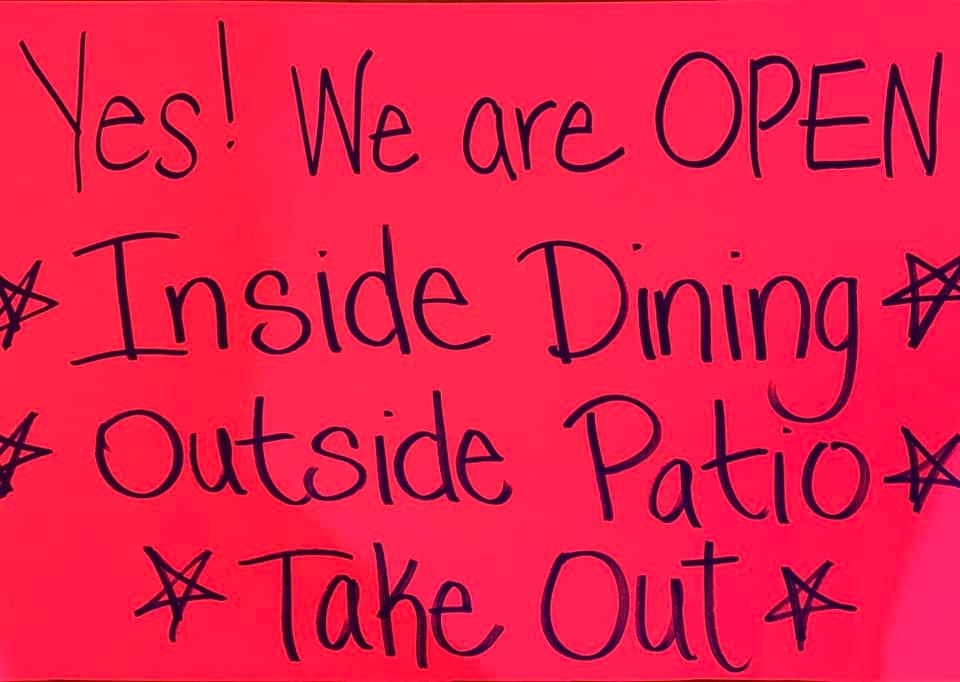 Yes! We are OPEN
☆ Inside Dining ☆
☆ Outside Patio ☆
☆ Take Out ☆